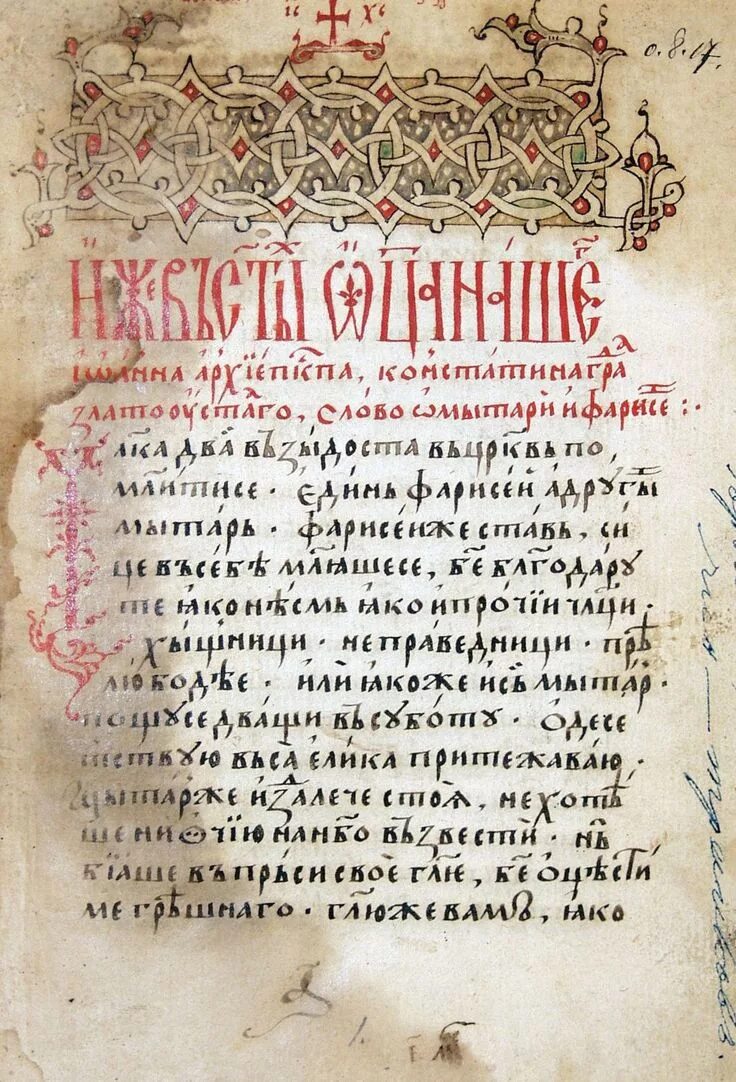 і҃с х҃с
о. 8. 17.
И҆же въ ст҃ы́хъ ѿц҃а на́шег҃
і҆ѡа́нна а҆рхїепі́ск҃па, конста́тина гра́да
златоꙋста́го, сло́во ѡ мытари̑ и҆ фарисе̑ :·
Чл҃ка два̀ възы́доста въ цр҃ковь по
мл҃и́тисе · є҆ди́нь фарисе́й а҆ дрꙋгы́и
мыта́рь · фарисе́и же ста́вь, си
це въ се́бѣ мл҃ꙗ́шесе, бж҃е бл҃года́рꙋ
те ꙗ҆ко нѣ́смь ꙗ҆ко и҆ про́чїи чл҃ци ·
хы́щници · непра́ведници · прѣ
любо́дѣе · и҆лѝ ꙗ҆ко же и҆ съ̀ мы́тар ·
пощꙋсе два́щи въ сꙋбо́тꙋ · ѻ҆десе
тствꙋю въса̀ є҆ли́ка притежа́ваю ·
мыта́рже и҆здале́че стоѧ̀, не хотѣ́
ше ни ѻ҆чїю на нб҃о въ́звести̑ · нь
бїа́ше въ пръ́си своѐ гл҃ѥ, бж҃е ѻ҆цѣ́сти
ме грѣ́шнаго · гл҃юже вамь, ꙗ҆ко
1.